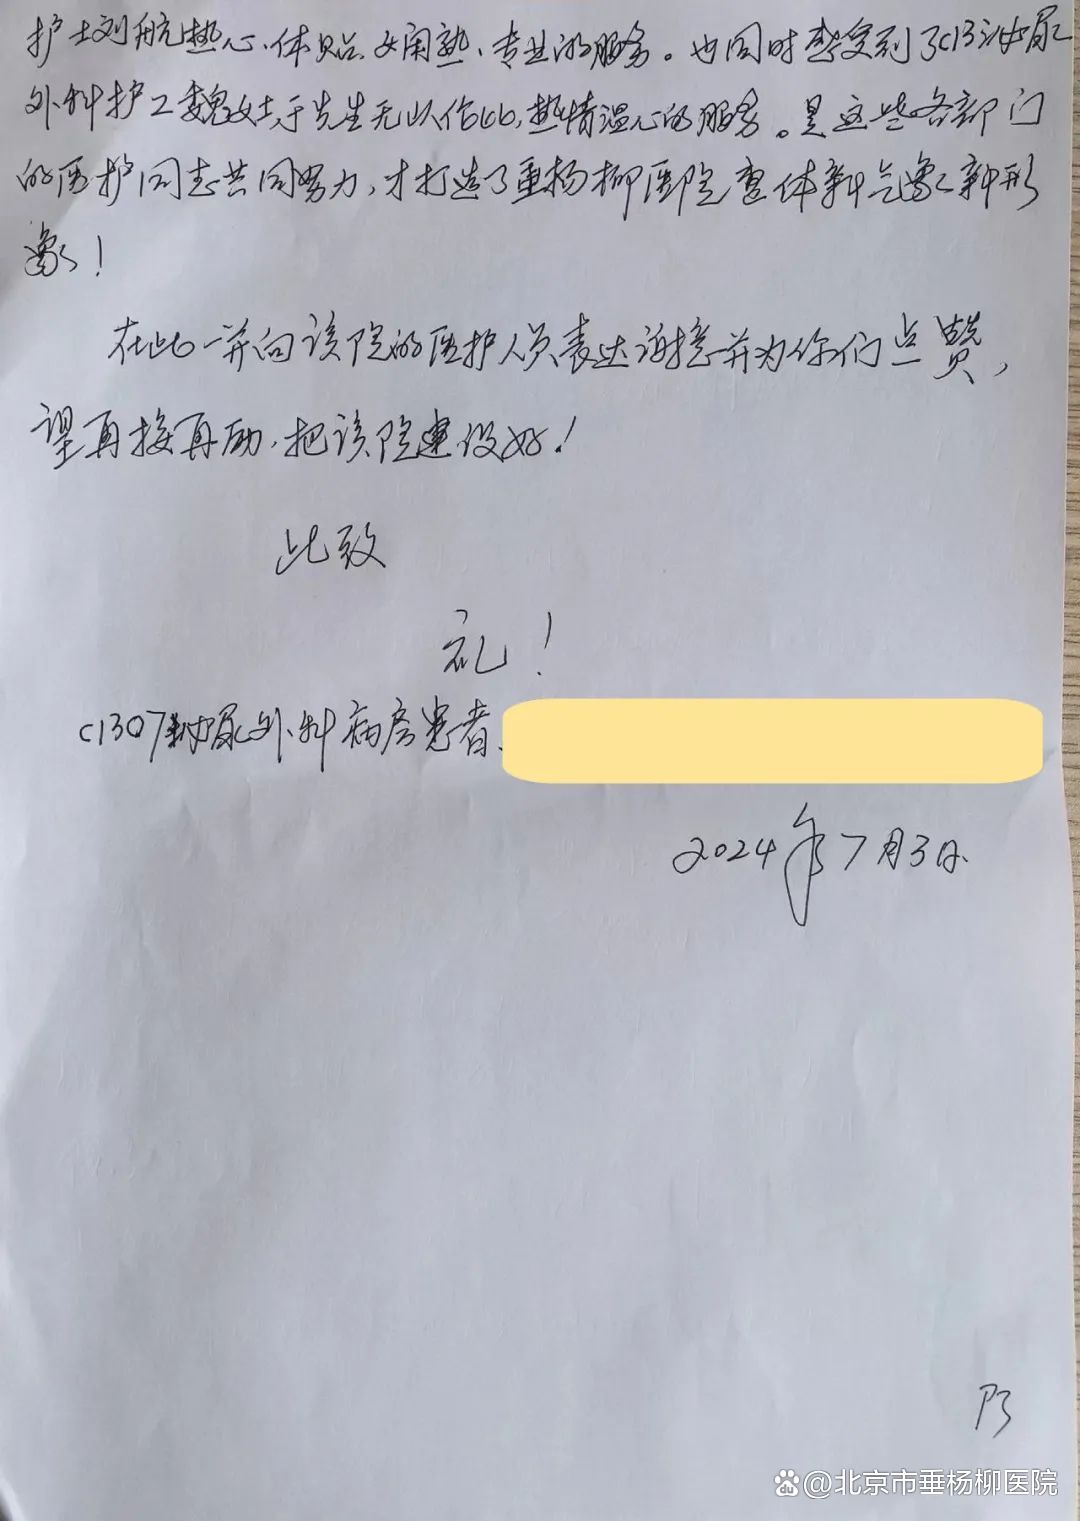 护士刘航热心、体贴、娴熟、专业的服务。也同时感受到了C13泌尿
外科护工魏女士于先生无以伦比,热情温心的服务。是这些各部门
的医护同志共同努力,才打造了垂杨柳医院整体新气象、新形
象!
在此一并向该院的医护人员表达谢意并为你们点赞,
望再接再励,把该院建设好!
此致
礼!
C1307泌尿外科病房患者、
2024年7月3日
P3
@北京市垂杨柳医院